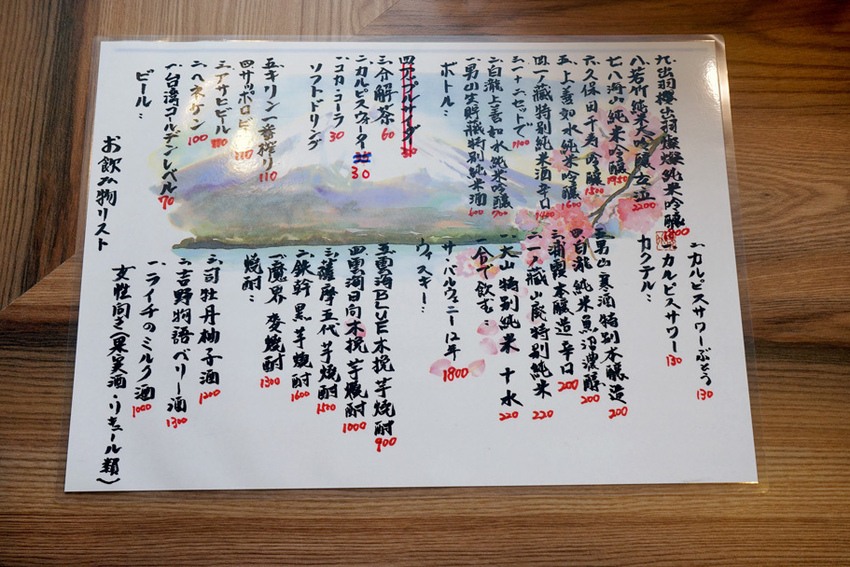 お飲み物リスト
ビール：
一、台湾ゴールデンレベル 70
二、ヘネケン 100
三、アサヒビール
四、サッポロビール 110
五、キリン一番搾り 110
ソフトドリング
一、コカ・コーラ 30
二、カルピスウォーター 30
三、分解茶 60
四、アップルサイダー
ボトル：
一、男山生貯蔵特別純米酒 600
二、白瀧上善如水純米吟醸 700
三、一十二セットで
四、一ノ蔵特別純米酒辛口 1400
五、上善如水純米吟醸 1600
六、久保田千寿吟醸 1500
七、八海山純米吟醸 1950
八、若竹純米大吟醸女泣 2200
九、出羽櫻出羽燦燦純米吟醸 1800
女性向き(果実酒・リキュール類)
一、ライチのミルク酒 1000
二、吉野物語ベリー酒 1300
三、司牡丹柚子酒 1200
焼酎：
一、魔界 麦焼酎 1300
二、鉄幹 黒芋焼酎 1600
三、薩摩五代芋焼酎 1500
四、雲海日向木挽芋焼酎 1000
五、雲海BLUE木挽芋焼酎 900
ウィスキー：
サ・バルヴィニー12年 1800
一合で飲む：
一、大山特別純米十水 220
二、一ノ蔵山廃特別純米 220
三、浦霞本醸造辛口 200
四、白瀧純米魚沼濃醇 200
五、男山寒酒特別本醸造 200
カクテル：
一、カルピスサワー 130
二、カルピスサワーぶどう 130